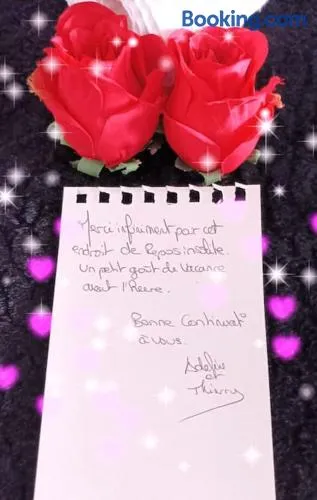 Booking.com
Merci infiniment par cet
endroit de Repos insolite.
un petit goût de Vacance
avant l'Heure.
Bonne Continuat°
à vous.
et
Thierry